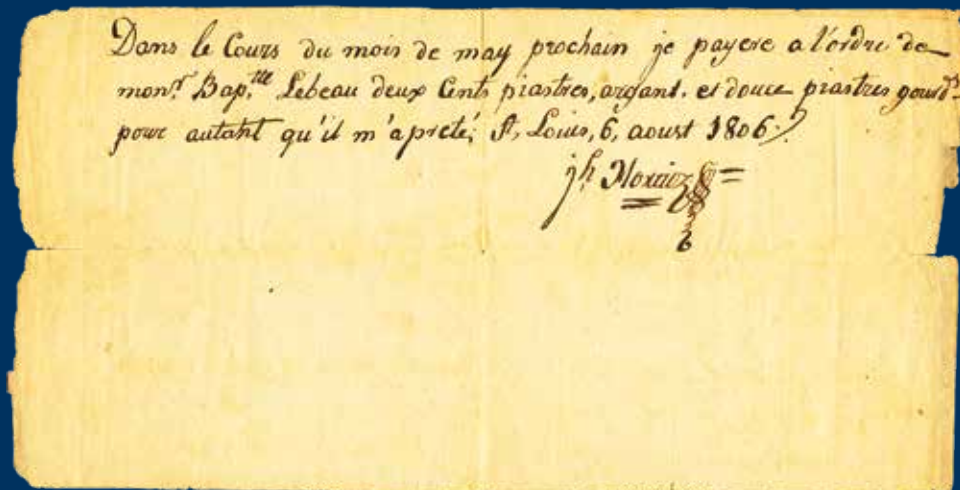 Dans le Cours du mois de may prochain je payere a l'ordre de
mons.r Bap.tte Lebeau deux Cents piastres, argant. et douce piastres gourd.s
pour autant qu'il m'a preté; St, Louis, 6, aoust 1806.
jh